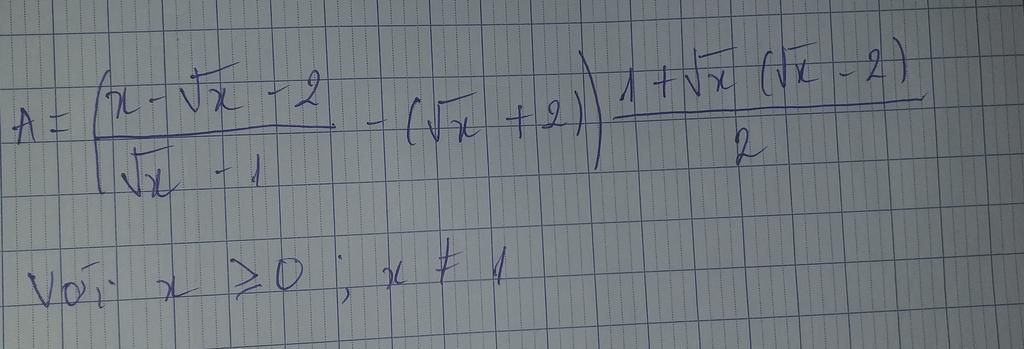 A = (\frac{x - \sqrt{x} - 2}{\sqrt{x} - 1} - (\sqrt{x} + 2)) \frac{1 + \sqrt{x} (\sqrt{x} - 2)}{2}
Với x ≥ 0 ; x ≠ 1